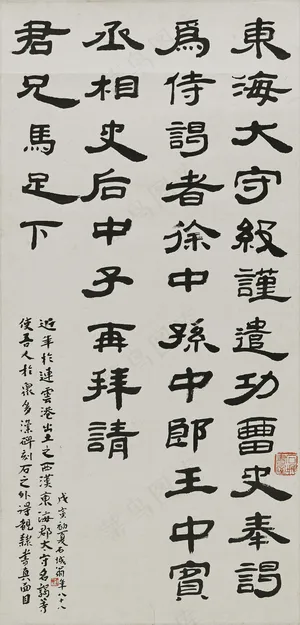 東海大守級謹遣功曹史奉謁
為侍謁者徐中孫中郎王中賓
丞相史后中子再拜請
君兄馬足下
近年於連雲港出土之西漢東海郡太守名謁等
使吾人於眾多漢碑刻石之外得親隸書真面目
戊亥初夏石城翁年八十八